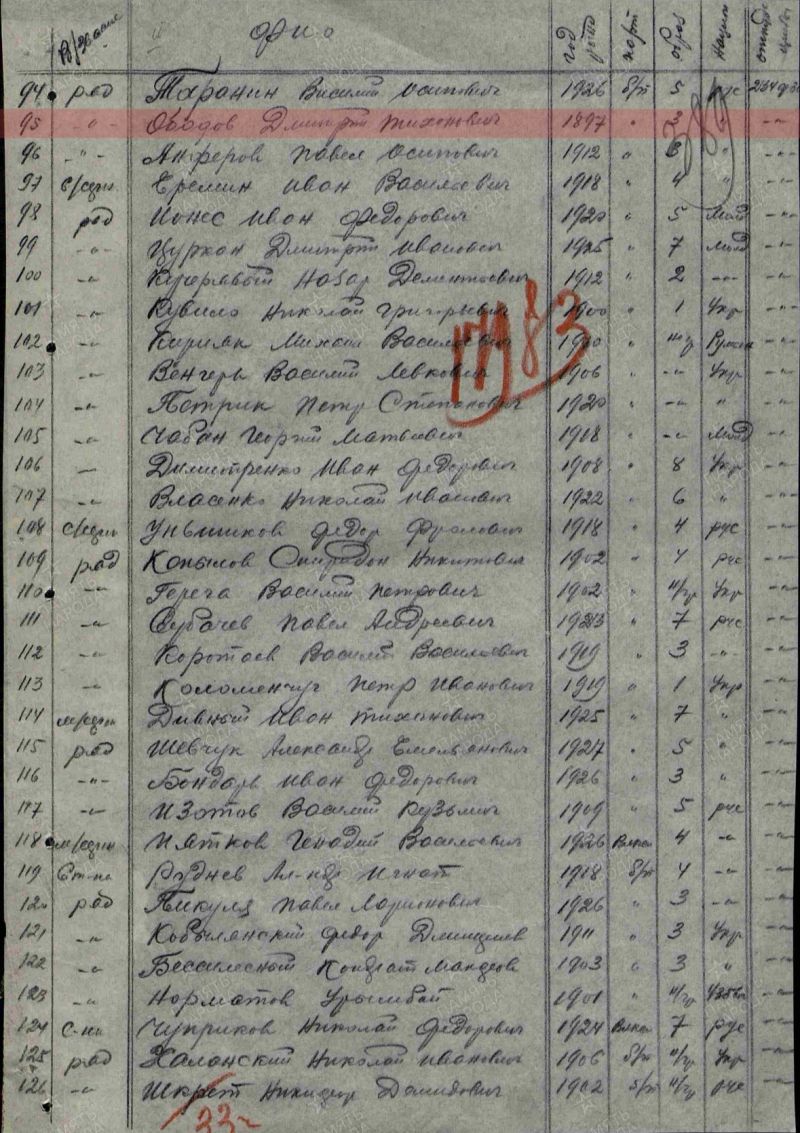 В/звание ФИО год рожд парт образ Нацио
94 ряд Таранин Василий Осипович 1926 б/п 5 рус
95 -"- Обадов Дмитрий Тихонович 1897 " 3 " -"-
96 -"- Анферов Павел Осипович 1912 " 3 " -"-
97 с/серж Еремин Иван Васильевич 1918 " 4 " -"-
98 ряд Ионес Иван Федорович 1920 " 5 Молд -"-
99 -"- Цуркан Дмитрий Иванович 1925 " 7 Молд -"-
100 -"- Кучерявый Назар Дементьевич 1912 " 2 -"- -"-
101 -"- Кувило Николай Григорьевич 1900 " 1 Укр -"-
102 -"- Кирияк Михаил Василевич " -"-
103 -"- Венгерь Василий Левкович 1906 " -"- Укр -"-
104 -"- Петрик Петр Степанович 1920 " -"- " -"-
105 -"- Чабан Георгий Матвеевич 1908 " -"- Молд -"-
106 -"- Димитренко Иван Федорович 1908 " 8 Укр -"-
107 -"- Власенко Николай Иванович 1922 " 6 " -"-
108 с/серж Федор 1918 " 4 рус -"-
109 ряд Копылов Спиридон Никитович 1902 " 4 рус -"-
110 -"- Герега Василий Петрович 1902 " н/гр Укр -"-
111 -"- Субачев Павел Андреевич " 7 рус -"-
112 -"- Коротаев Василий Васильевич 1919 " 3 -"- -"-
113 -"- Коломенчук Петр Иванович 1919 " 1 Укр -"-
114 м/серж Дивный Иван Тихонович 1925 " 7 " -"-
115 ряд Шевчук Александр Емельянович 1927 " 5 " -"-
116 -"- Бондарь Иван Федорович 1926 " 3 " -"-
117 -"- Изотов Василий Кузьмич 1909 " 5 рус -"-
118 м/серж Пятков Генадий Василевич 1926 4 -"- -"-
119 Ст-на Руднев Ал-ндр Игнат 1918 б/п 4 -"- -"-
120 ряд Пикуля Павел Ларионович 1926 " 3 -"- -"-
121 -"- Кобылянский Федор 1911 " 3 Укр -"-
122 -"- Бесчасный Кондрат 1903 " 3 " -"-
123 -"- Норматов Урымбай 1901 " н/гр Узбек -"-
124 С-на Чуприков Николай Федорович 1924 7 рус -"-
125 ряд Халанский Николай Иванович 1906 б/п н/гр Укр -"-
126 -"- Шкрет Никифор Демидович 1902 б/п н/гр рус -"-
389
17983
33